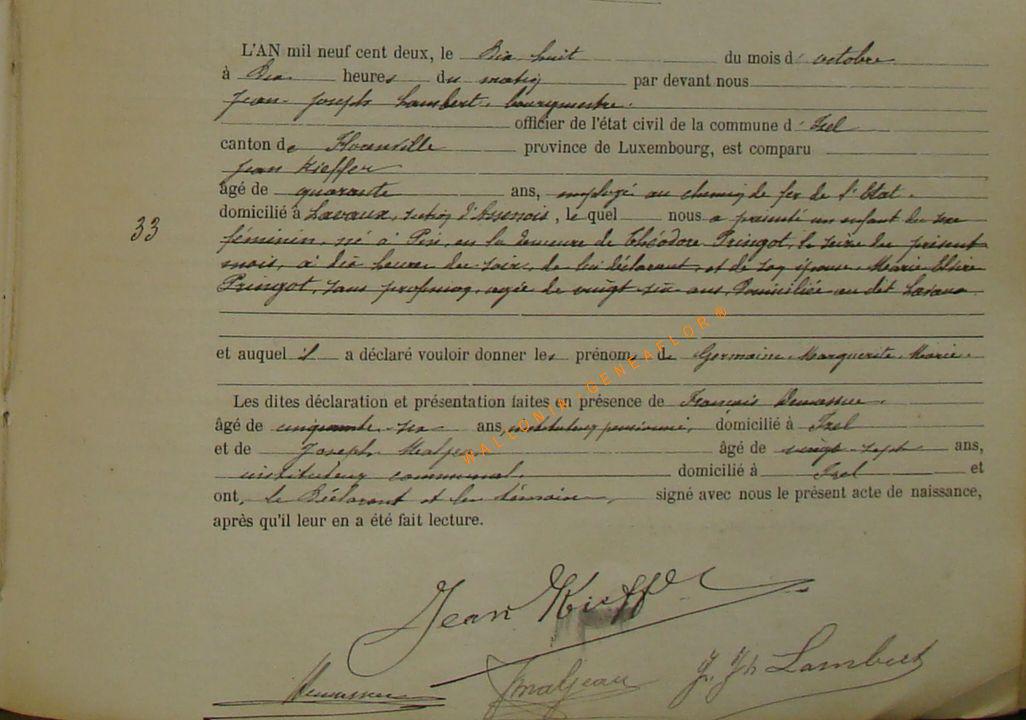 L'AN mil neuf cent deux, le Dix huit du mois d' octobre
à Dix heures du matin par devant nous
Jean Joseph Lambert, bourgmestre
officier de l'état civil de la commune d' Izel
canton de Florenville province de Luxembourg, est comparu
Jean Kieffer
âgé de quarante ans, employé au chemin de fer de l'Etat,
33
domicilié à Lavaux, section d'Assenois, le quel nous a présenté un enfant du sexe
féminin, né à Pin, en la demeure de Théodore Pringot, le seize du présent
mois, à dix heures du soir, de lui déclarant, et de son épouse Marie
Pringot, sans profession, agée de vingt six ans, Domiciliée au dit Lavaux
et auquel il a déclaré vouloir donner les prénoms de Germaine Marguerite Marie
WALLONIA-GENEAFLOR®
Les dites déclaration et présentation faites en présence de François
âgé de cinquante-six ans, instituteur pensionné, domicilié à Izel
et de Joseph Maljean âgé de vingt-sept ans,
instituteur communal domicilié à Izel et
ont, le Déclarant et les témoins, signé avec nous le présent acte de naissance,
après qu'il leur en a été fait lecture.
Jean Kieffer
JMaljean J. Jh Lambert